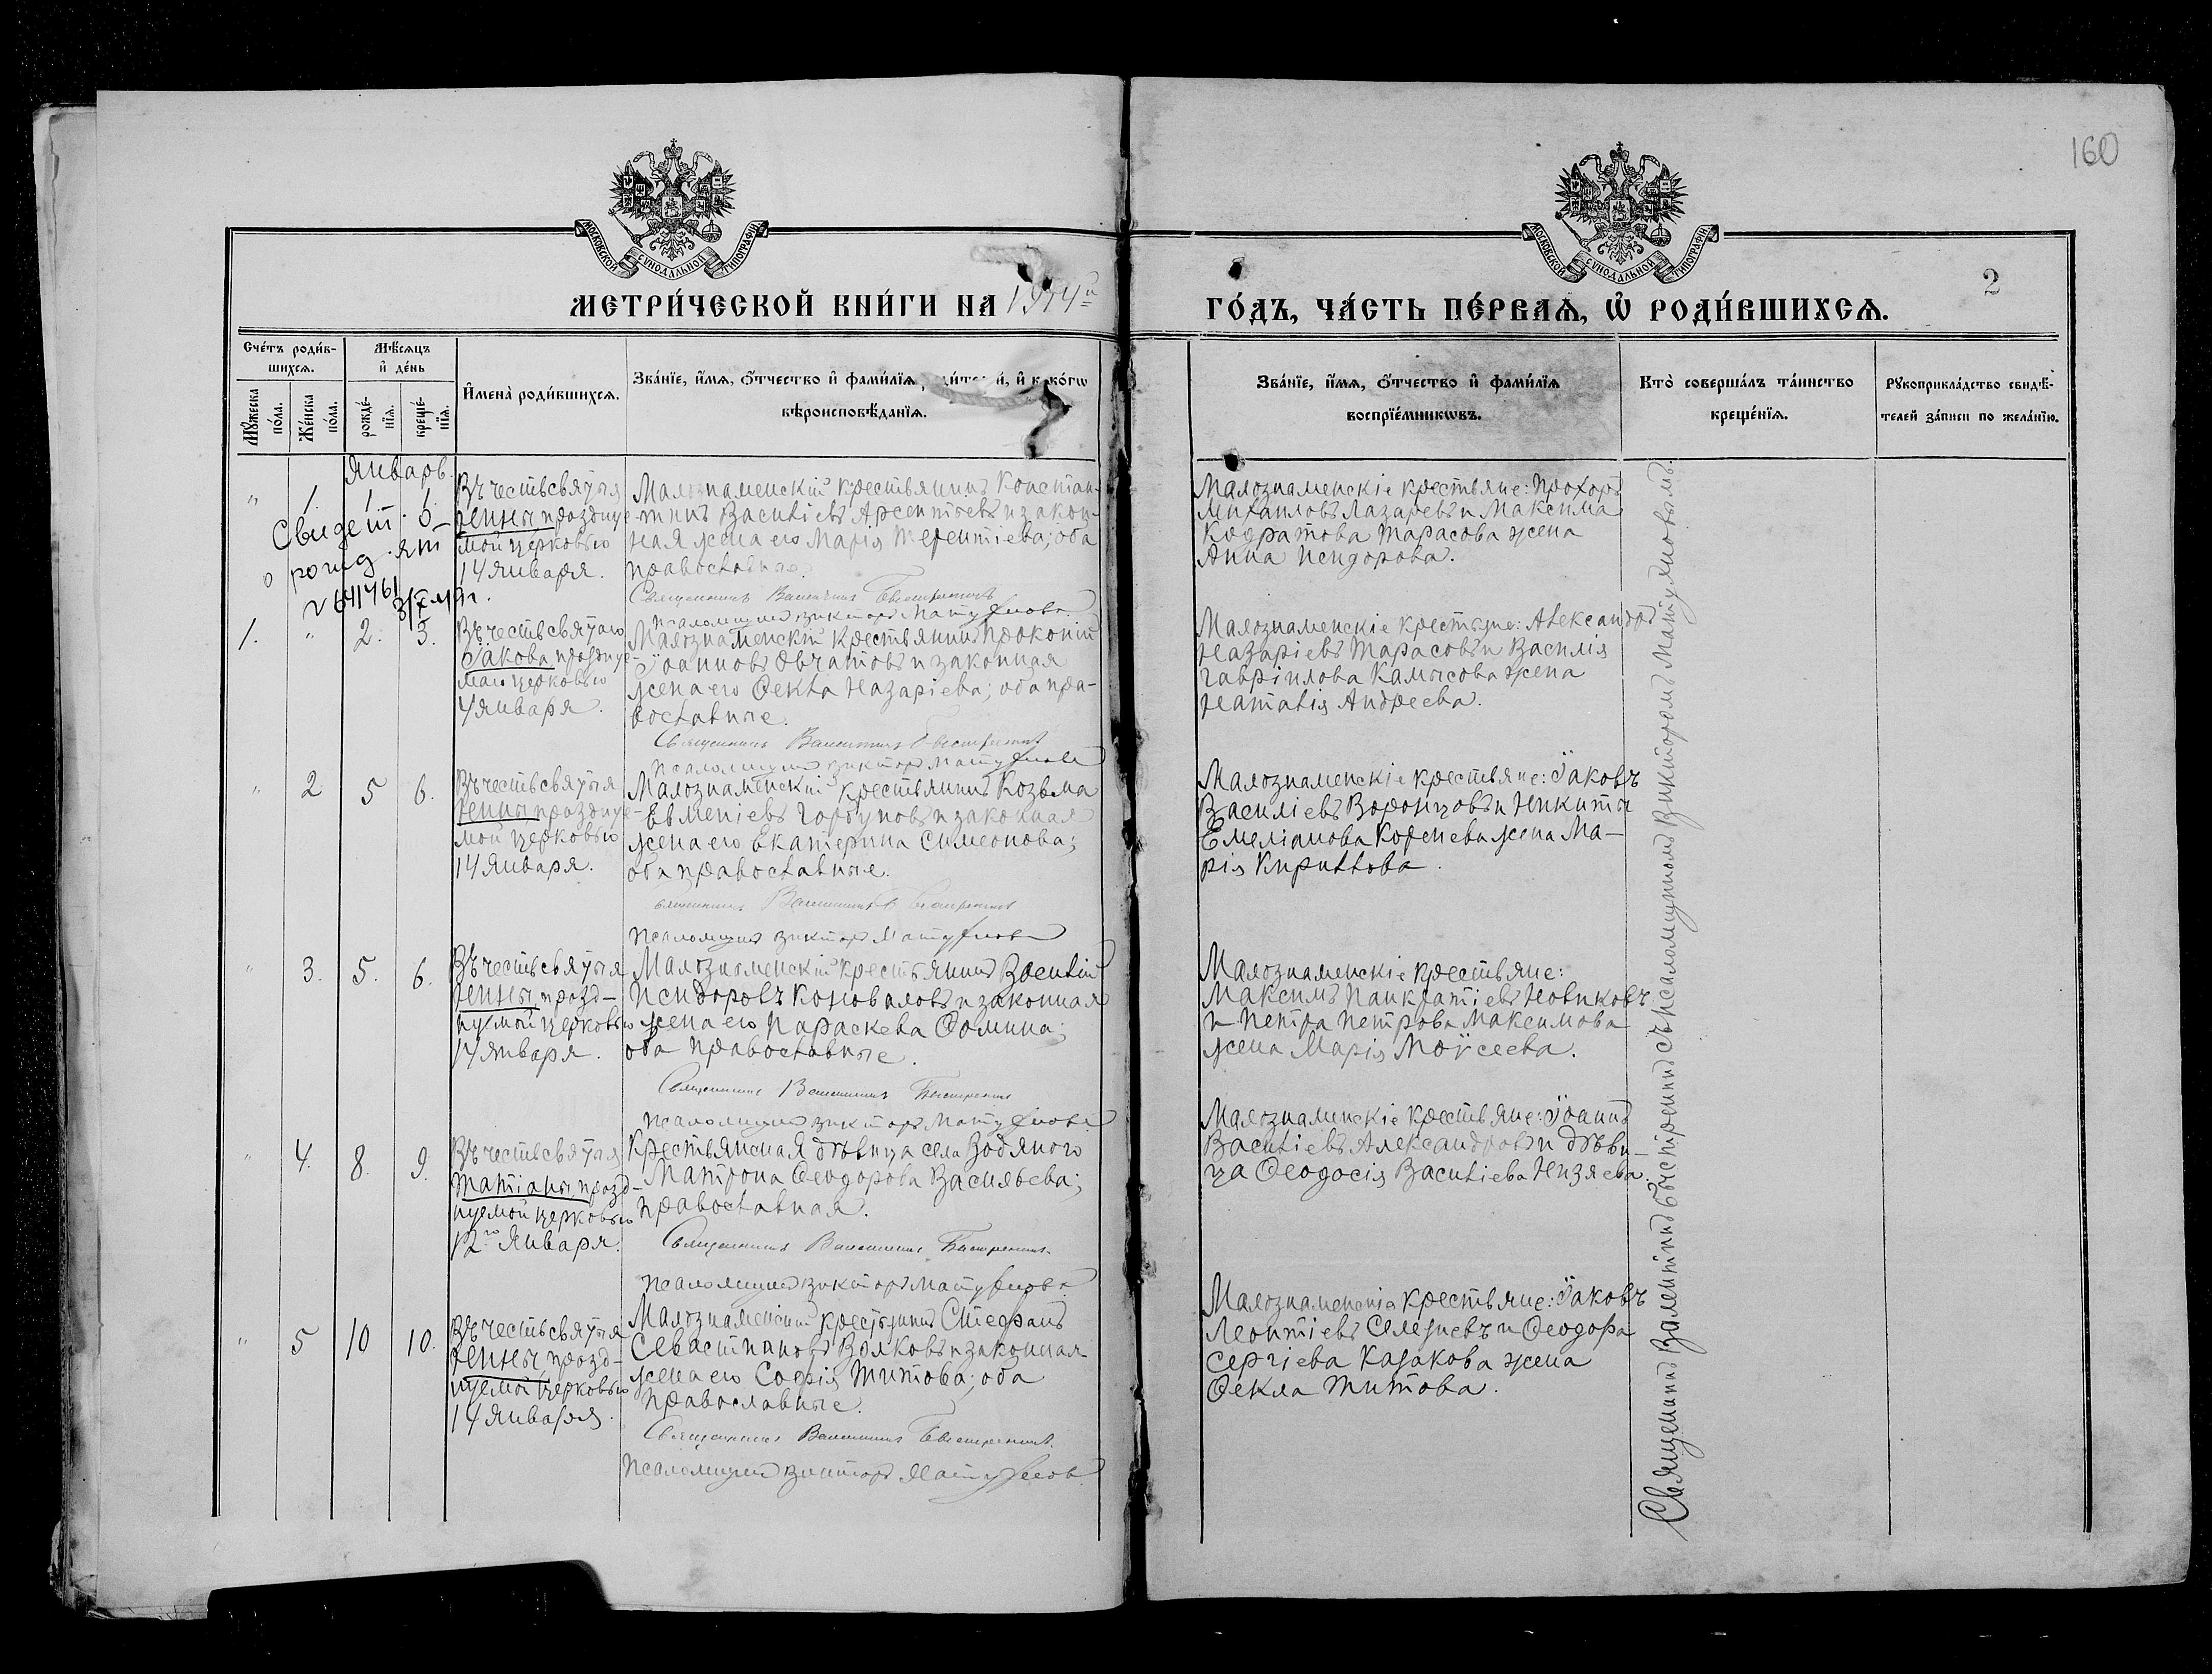 160
МОСКОВСКОЙ СѴНОДАЛЬНОЙ ТИПОГРАФІИ
МОСКОВСКОЙ СѴНОДАЛЬНОЙ ТИПОГРАФІИ
2
МЕТРИ́ЧЕСКОЙ КНИ́ГИ НА 1914й ГО́ДЪ, ЧА́СТЬ ПЕ́РВАѦ, Ѡ҆ РОДИ́ВШИХСѦ.
Сче́тъ роди́в-
шихсѧ.
Мꙋ́жеска по́ла.
Же́нска по́ла.
Мѣ́сѧцъ и҆ де́нь
рожде́-нїѧ.
креще́-нїѧ.
И҆мена̀ роди́вшихсѧ.
Зва́нїе, и҆́мѧ, ѻ҆́тчество и҆ фами́лїѧ роди́телей, и҆ како́гѡ
вѣроисповѣ́данїѧ.
Зва́нїе, и҆́мѧ, ѻ҆́тчество и҆ фами́лїѧ
воспрїе́мникѡвъ.
Кто̀ соверша́лъ та́инство
креще́нїѧ.
Рꙋкоприкла́дство свидѣ́-
телей за́писи по жела́нїю.
Январь.
" 1. 1.
Свидет. о
о рожд.
Въ честь святыя
Нины праздnуе-
мой церковью
14 января.
Малознаменскій крестьянинъ Констан-
тинъ Василіевъ Арсентьевъ и закон-
ная жена его Марія Терентіева; оба
православные.
Священникъ Валентинъ Быстренинъ
Псаломщикъ Викторъ Матуфновъ
Малознаменскіе крестьяне: Прохоръ
Михаиловъ Лазаревъ и Максима
Кодратова Тарасова жена
Анна Исидорова.
1. " 2. 3.
Въ честь святаго
Іакова праздnуе-
маго церковью
4 января.
Малознаменскій крестьянинъ Прокопій
Іоанновъ Овчатовъ и законная
жена его Ѳекла Назаріева; оба пра-
вославные.
Священникъ Валентинъ Быстренинъ
Псаломщикъ Викторъ Матуфновъ
Малознаменскіе крестьяне: Александръ
Назаріевъ Тарасовъ и Василія
Гавріилова Камысова жена
Наталія Андреева.
" 2 5 6.
Въ честь святыя
Нины праздnуе-
мой церковью
14 января.
Малознаменскій крестьянинъ Козьма
Евменіевъ Горбуновъ и законная
жена его Екатерина Симеонова;
оба православные.
Священникъ Валентинъ Быстренинъ
Псаломщикъ Викторъ Матуфновъ
Малознаменскіе крестьяне: Іаковъ
Василіевъ Воронцовъ и Никиты
Емеліанова Коренева жена Ма-
рія Кириллова.
" 3. 5. 6.
Въ честь святыя
Нины празд-
нуемой церковью
14 января.
Малознаменскій крестьянинъ
Исидоровъ Коноваловъ и законная
жена его Параскева Ѳомина;
оба православные.
Священникъ Валентинъ Быстренинъ
Псаломщикъ Викторъ Матуфновъ
Малознаменскіе крестьяне:
Максимъ Панкратіевъ Новиковъ
и Петра Петрова Максимова
жена Марія Моѵсеева.
" 4. 8. 9.
Въ честь святыя
Татіаны празд-
нуемой церковью
12го января.
Крестьянская дѣвица села Водяного
Матрона Ѳеодорова Васильева;
православная.
Священникъ Валентинъ Быстренинъ
Псаломщикъ Викторъ Матуфновъ
Малознаменскіе крестьяне: Іоаннъ
Василіевъ Александровъ и дѣви-
ца Ѳеодосія Василіева Низяева.
" 5 10 10.
Въ честь святыя
Нины празд-
нуемой церковью
14 января.
Малознаменскій крестьянинъ Стефанъ
Севастіановъ Волковъ и законная
жена его Софія Титова; оба
православные.
Священникъ Валентинъ Быстренинъ
Псаломщикъ Викторъ Матуфновъ
Малознаменскіе крестьяне: Іаковъ
Леонтіевъ Селезневъ и Ѳеодора
Сергіева Казакова жена
Ѳекла Титова.
Священникъ Валентинъ Быстренинъ съ псаломщикомъ Викторомъ